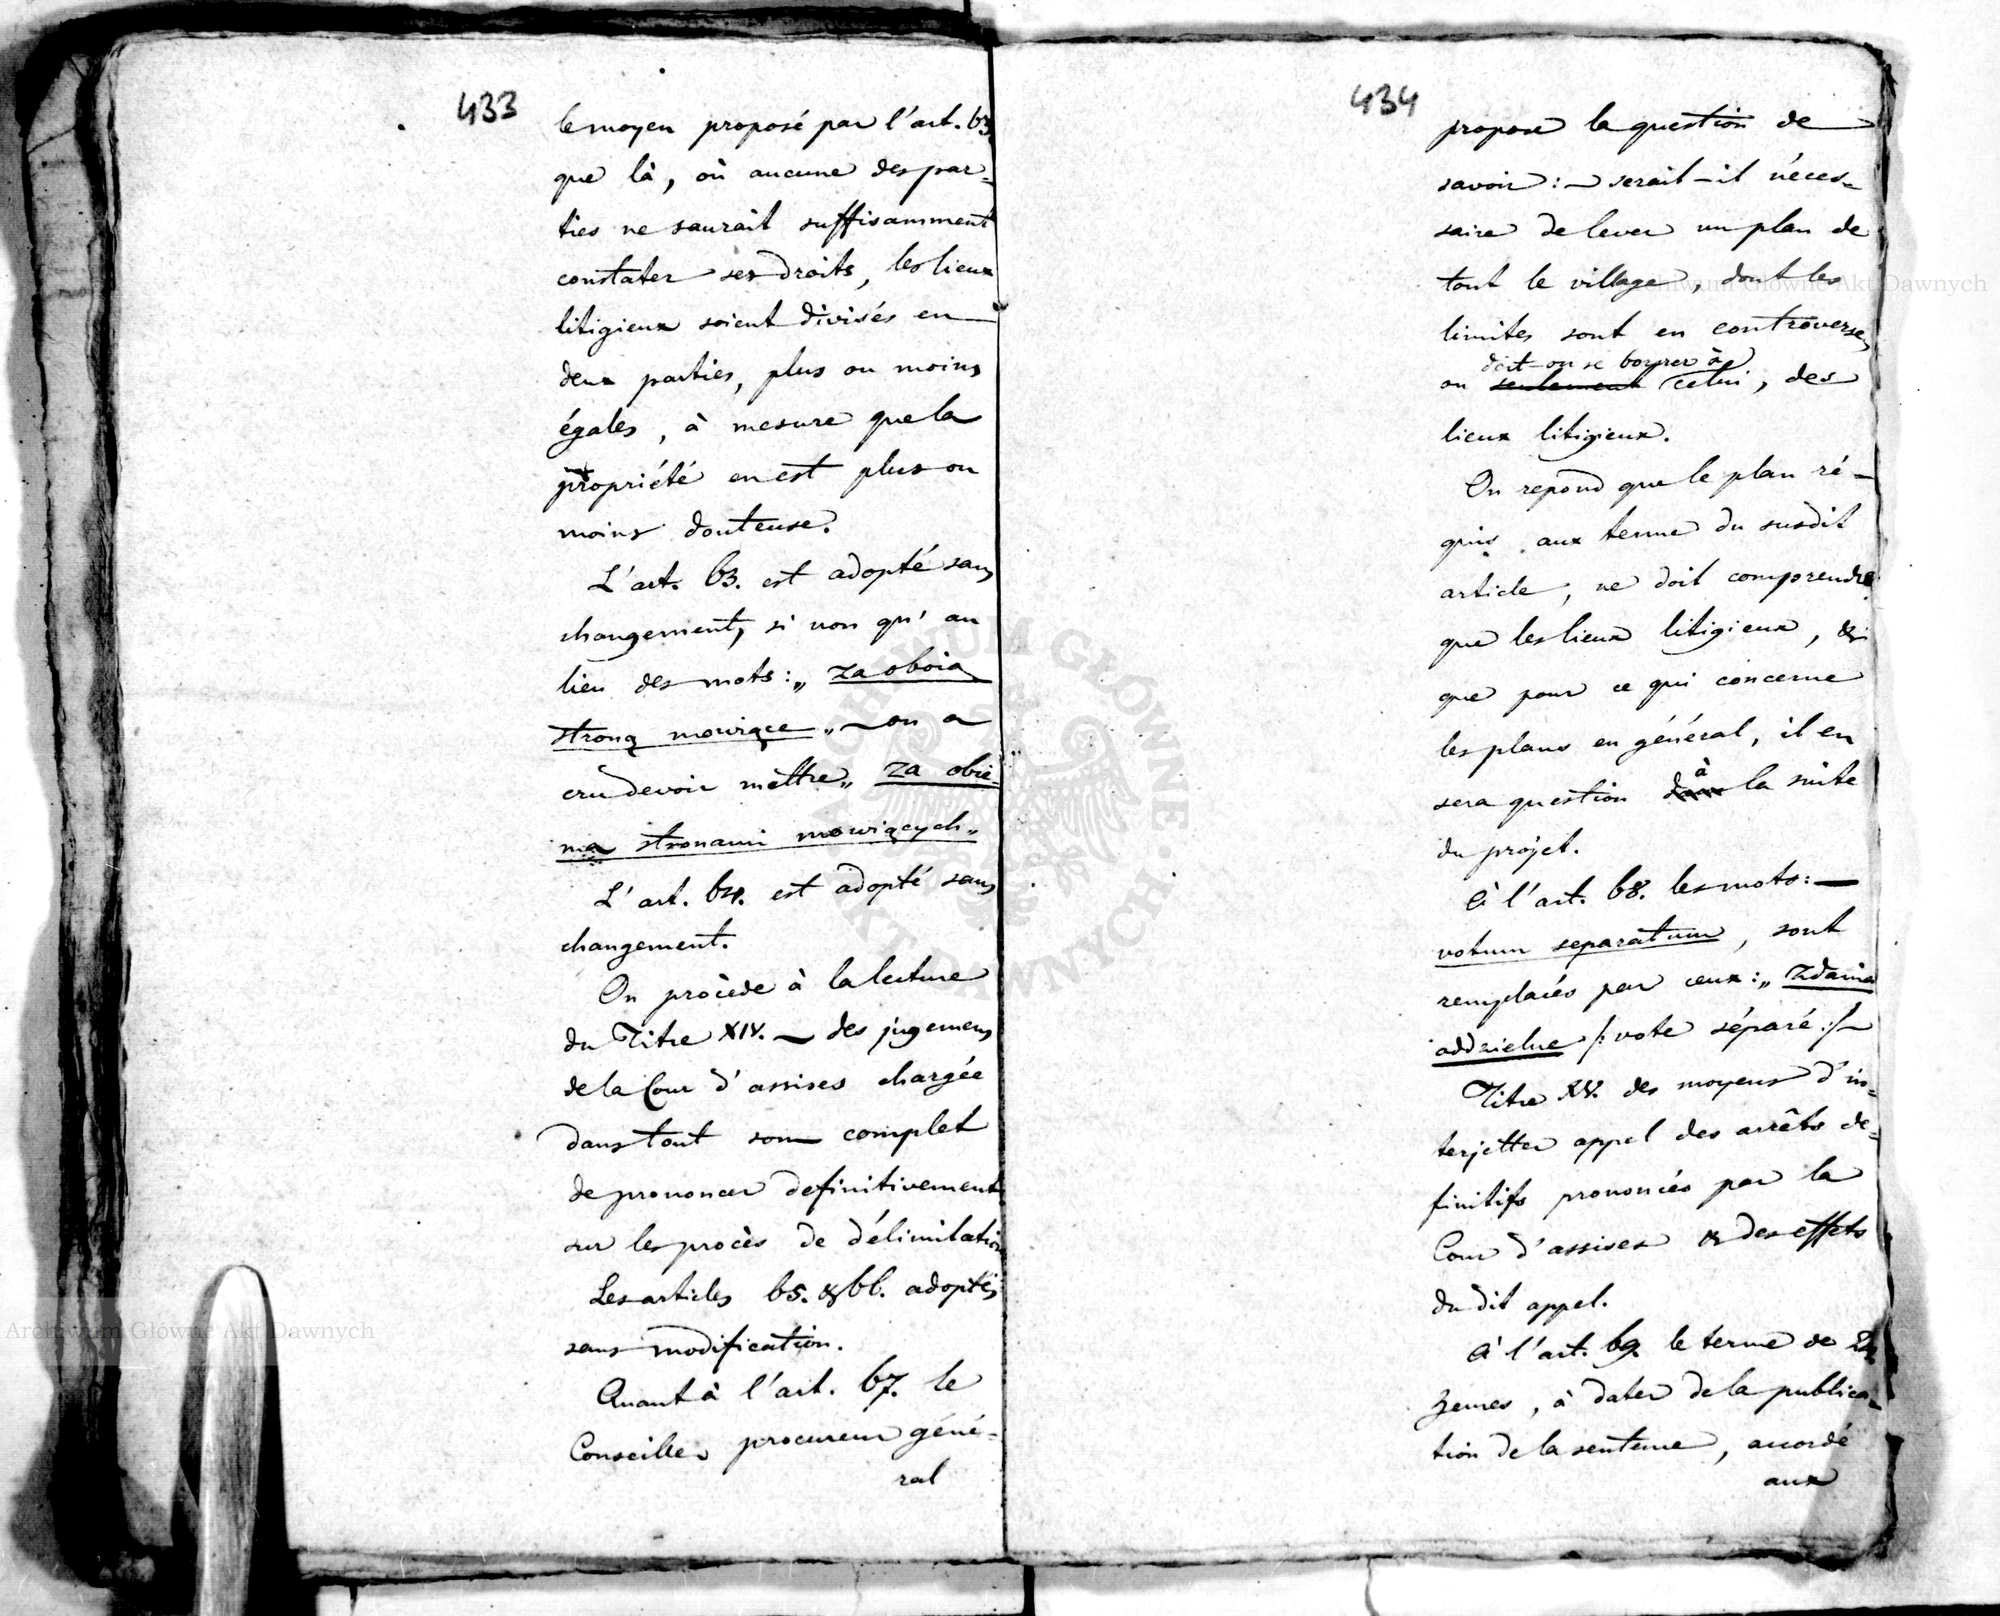 433
le moyen proposé par l'art. 63
que là, où aucune des par-
ties ne saurait suffisamment
constater ses droits, les lieux
litigieux soient divisés en
deux parties, plus ou moins
égales, à mesure que la
propriété en est plus ou
moins douteuse.
L'art. 63. est adopté sans
changement, si non qu'au
lieu des mots: „ za oboią
stroną mowiące „ — on a
cru devoir mettre „ za obie-
ma stronami mowiących „
L'art. 64. est adopté sans
changement.
On procède à la lecture
du Titre XIV. — des jugemens
de la Cour d'assises chargée
dans tout son complet
de prononcer definitivement
sur les procès de délimitation
Les articles 65. & 66. adoptés
sans modification.
Quant à l'art. 67. le
Conseiller procureur géné-
ral
434
propose la question de
savoir: — serait-il néces-
saire de lever un plan de
tout le village, dont les
limites sont en controverse,
doit-on se borner à
ou seulement celui, des
lieux litigieux.
On repond que le plan ré-
quis aux terme du susdit
article, ne doit comprendre
que les lieux litigieux, &
que pour ce qui concerne
les plans en général, il en
à
sera question dans la suite
du projet.
à l'art. 68. les mots: —
votum separatum, sont
remplacés par ceux: „ zdanie
oddzielne /: vote séparé :/ —
Titre XV. des moyens d'in-
terjetter appel des arrêts de-
finitifs prononcés par la
Cour d'assises & des effets
du dit appel.
à l'art. 69. le terme de
zemes, à dater de la publica-
tion de la sentence, accordé
aux
Archiwum Główne Akt Dawnych
Archiwum Główne Akt Dawnych
ARCHIWUM GŁÓWNE AKT DAWNYCH